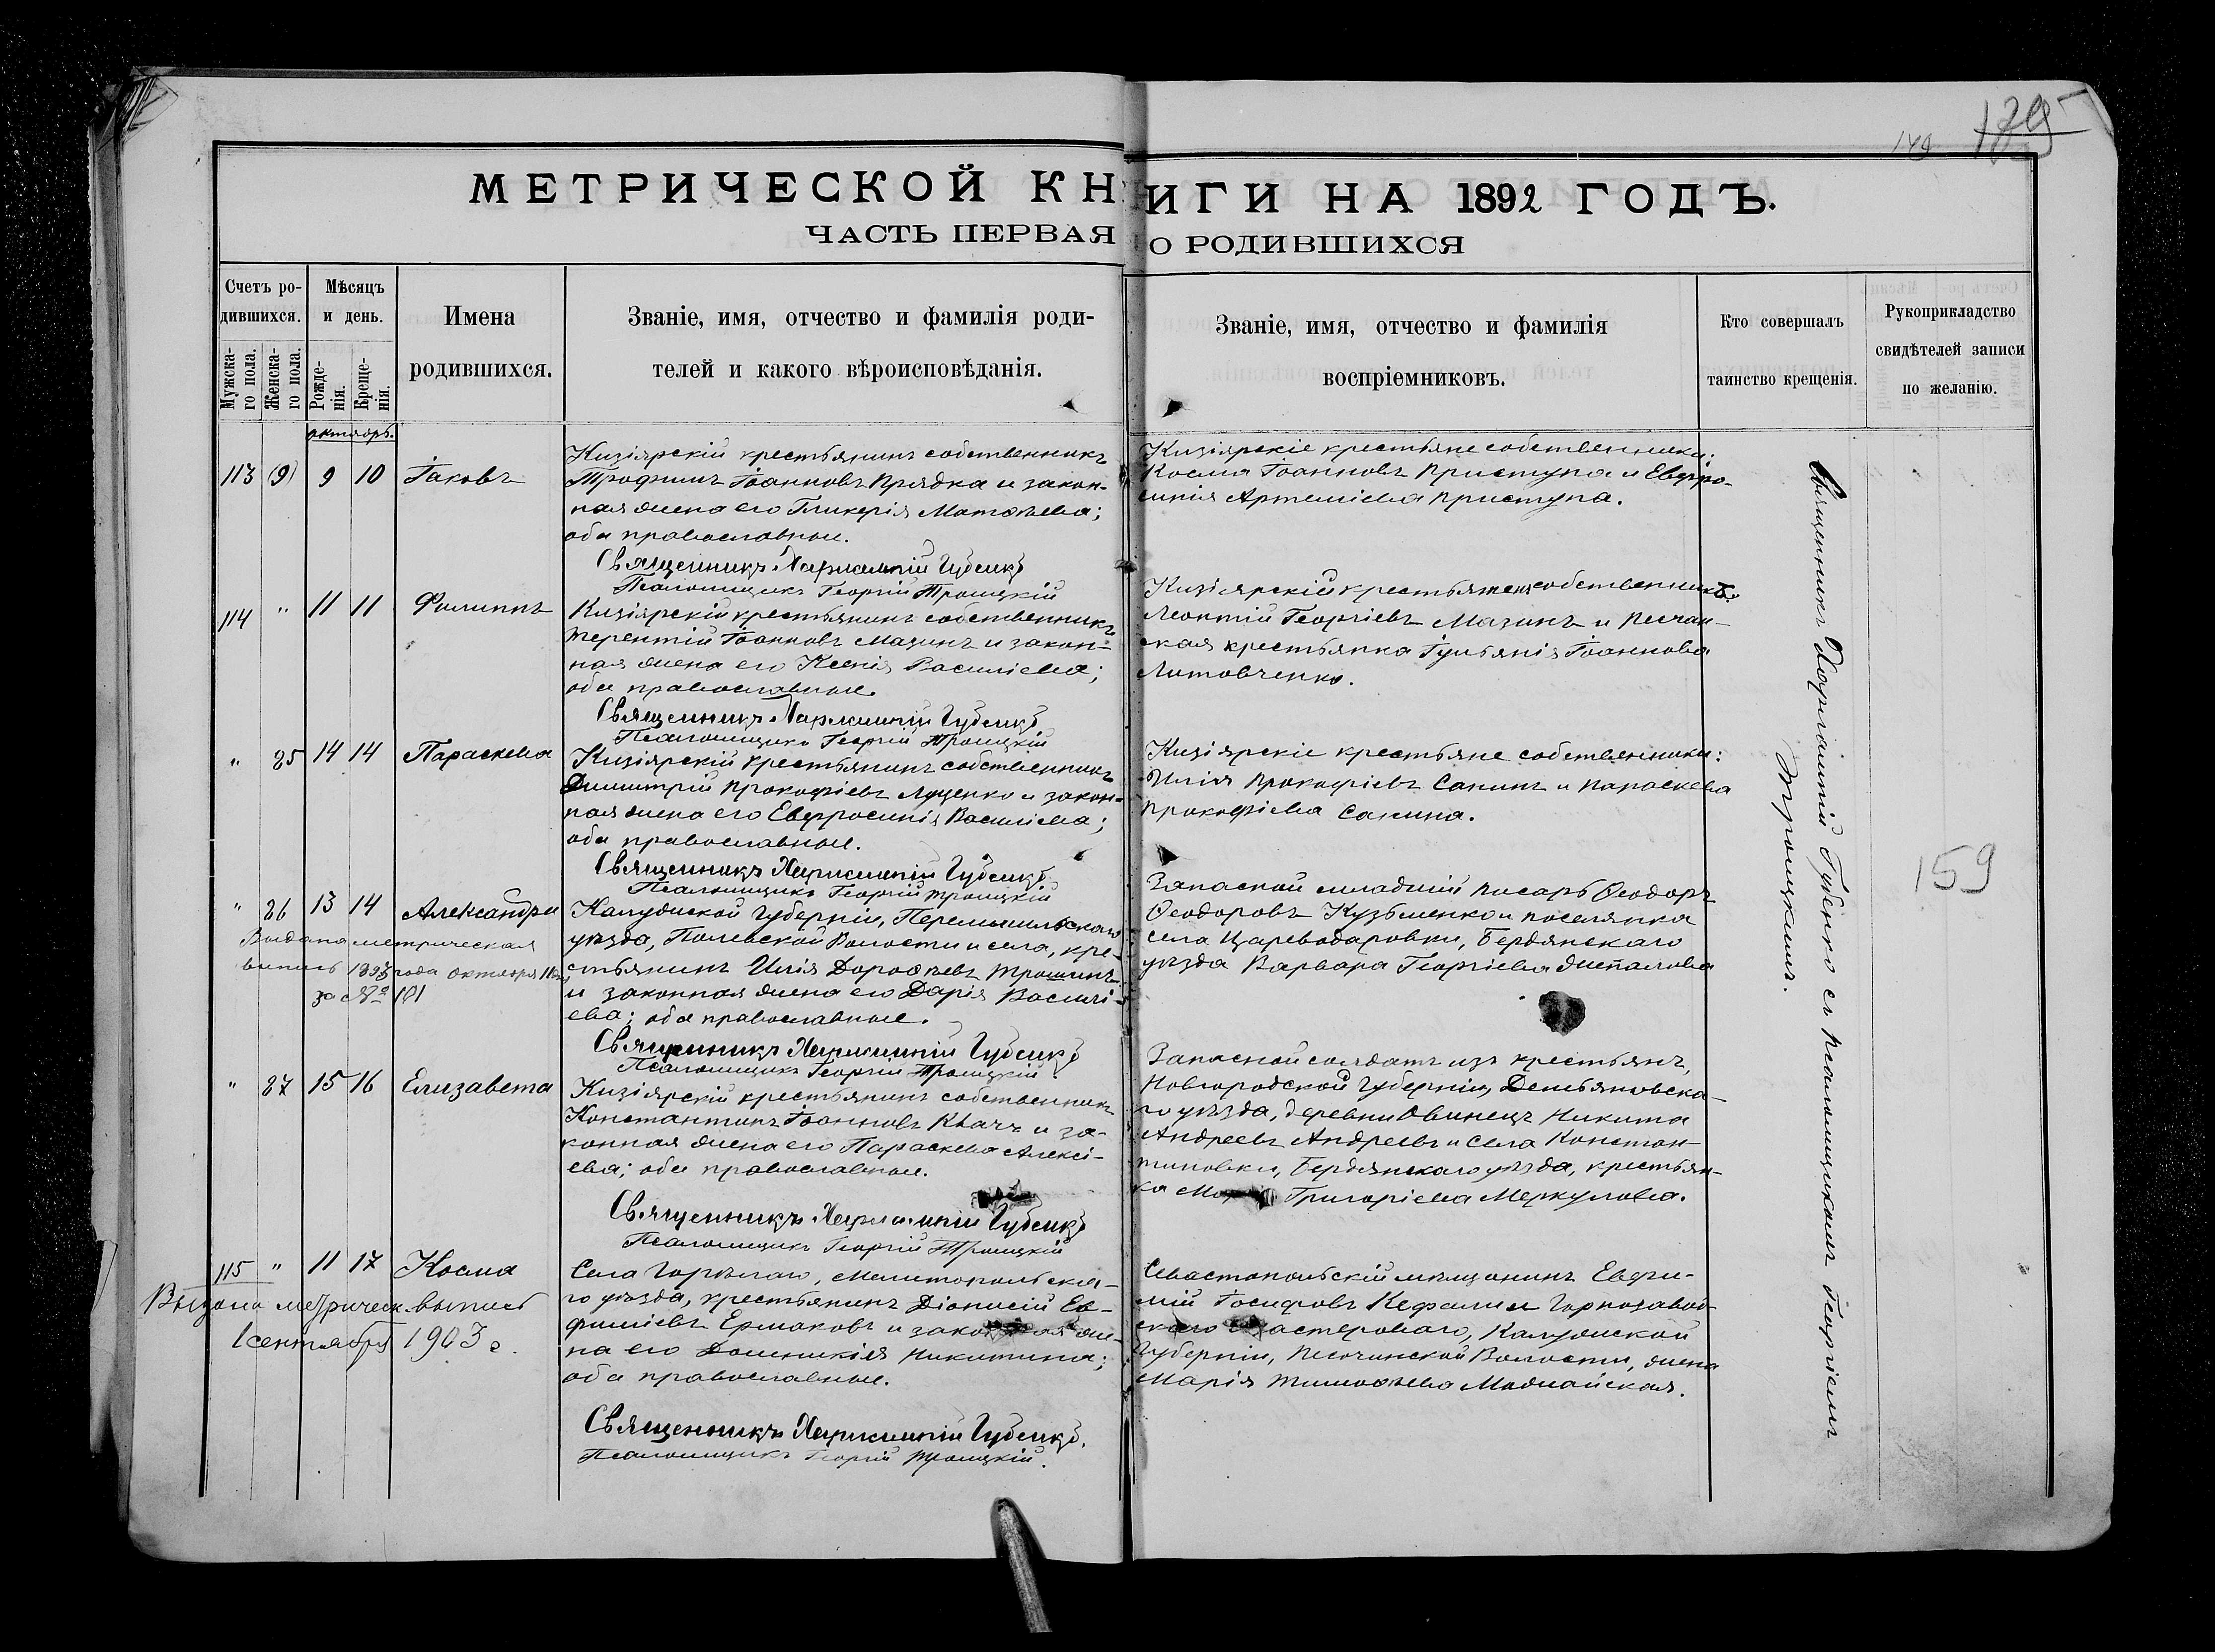 149 179
МЕТРИЧЕСКОЙ КНИГИ НА 1892 ГОДЪ.
ЧАСТЬ ПЕРВАЯ О РОДИВШИХСЯ
Счетъ ро-
дившихся.
Мужска-
го пола.
Женска-
го пола.
Мѣсяцъ
и день.
Рожде-
нія.
Креще-
нія.
Имена
родившихся.
Званіе, имя, отчество и фамилія роди-
телей и какого вѣроисповѣданія.
Званіе, имя, отчество и фамилія
воспріемниковъ.
Кто совершалъ
таинство крещенія.
Рукоприкладство
свидѣтелей записи
по желанію.
октябрь.
113 (9) 9 10 Іаковъ
Кизіярскій крестьянинъ собственникъ
Трофимъ Іоанновъ Прядка и закон-
ная жена его Гликерія Матѳѣева;
оба православные.
Священникъ Харлампій Губенко
Псаломщикъ Георгій Троицкій
Кизіярскіе крестьяне собственники:
Косма Іоанновъ Приступа и Евфро-
синія Артеміева Приступа.
114 " 11 11 Филиппъ
Кизіярскій крестьянинъ собственникъ
Терентій Іоанновъ Мазинъ и закон-
ная жена его Ксенія Василіева;
оба православные.
Священникъ Харлампій Губенко
Псаломщикъ Георгій Троицкій
Кизіярскій крестьянинъ собственникъ
Леонтій Георгіевъ Мазинъ и Песчан-
ская крестьянка Іуліанія Іоаннова
Литовченко.
" 25 14 14 Параскева
Кизіярскій крестьянинъ собственникъ
Димитрій Прокофіевъ Луценко и закон-
ная жена его Евфросинія Василіева;
оба православные.
Священникъ Харлампій Губенко
Псаломщикъ Георгій Троицкій
Кизіярскіе крестьяне собственники:
Илія Прокофіевъ Санинъ и Параскева
Прокофіева Санина.
" 26 13 14 Александра
Выдана метрическая
выпись года октября
за № 181
Калужской Губерніи, Перемышльскаго
уѣзда, Полевской Волости и села, кре-
стьянинъ Илія Дороѳѣевъ Трошинъ
и законная жена его Дарія Василі-
ева; оба православные.
Священникъ Харлампій Губенко
Псаломщикъ Георгій Троицкій
Запасной младшій писарь Ѳеодоръ
Ѳеодоровъ Кузьменко и поселянка
села Цареводаровки, Бердянскаго
уѣзда Варвара Георгіева
" 27 15 16 Елизавета
Кизіярскій крестьянинъ собственникъ
Константинъ Іоанновъ Квачъ и за-
конная жена его Параскева Алексі-
ева; оба православные.
Священникъ Харлампій Губенко
Псаломщикъ Георгій Троицкій
Запасной солдатъ изъ крестьянъ,
Новгородской Губерніи, Демьяновска-
го уѣзда, деревни Овинецъ Никита
Андреевъ Андреевъ и села Констан-
тиновки, Бердянскаго уѣзда, крестьян-
ка Григоріева Меркулова.
115 " 11 17 Косма
Выдана метрическ. выпись
1 сентября 1903 г.
Села Горѣлаго, Мелитопольска-
го уѣзда, крестьянинъ Діонисій Ев-
фиміевъ Ермаковъ и законная же-
на его Домникія Никитина;
оба православные.
Священникъ Харлампій Губенко.
Псаломщикъ Георгій Троицкій.
Севастопольскій мѣщанинъ Евфи-
мій Іосифовъ Кефали и
Губерніи, Песочинской Волости, жена
Марія Тимоѳѣева
Священникъ Харлампій Губенко съ псаломщикомъ Георгіемъ
Троицкимъ.
159